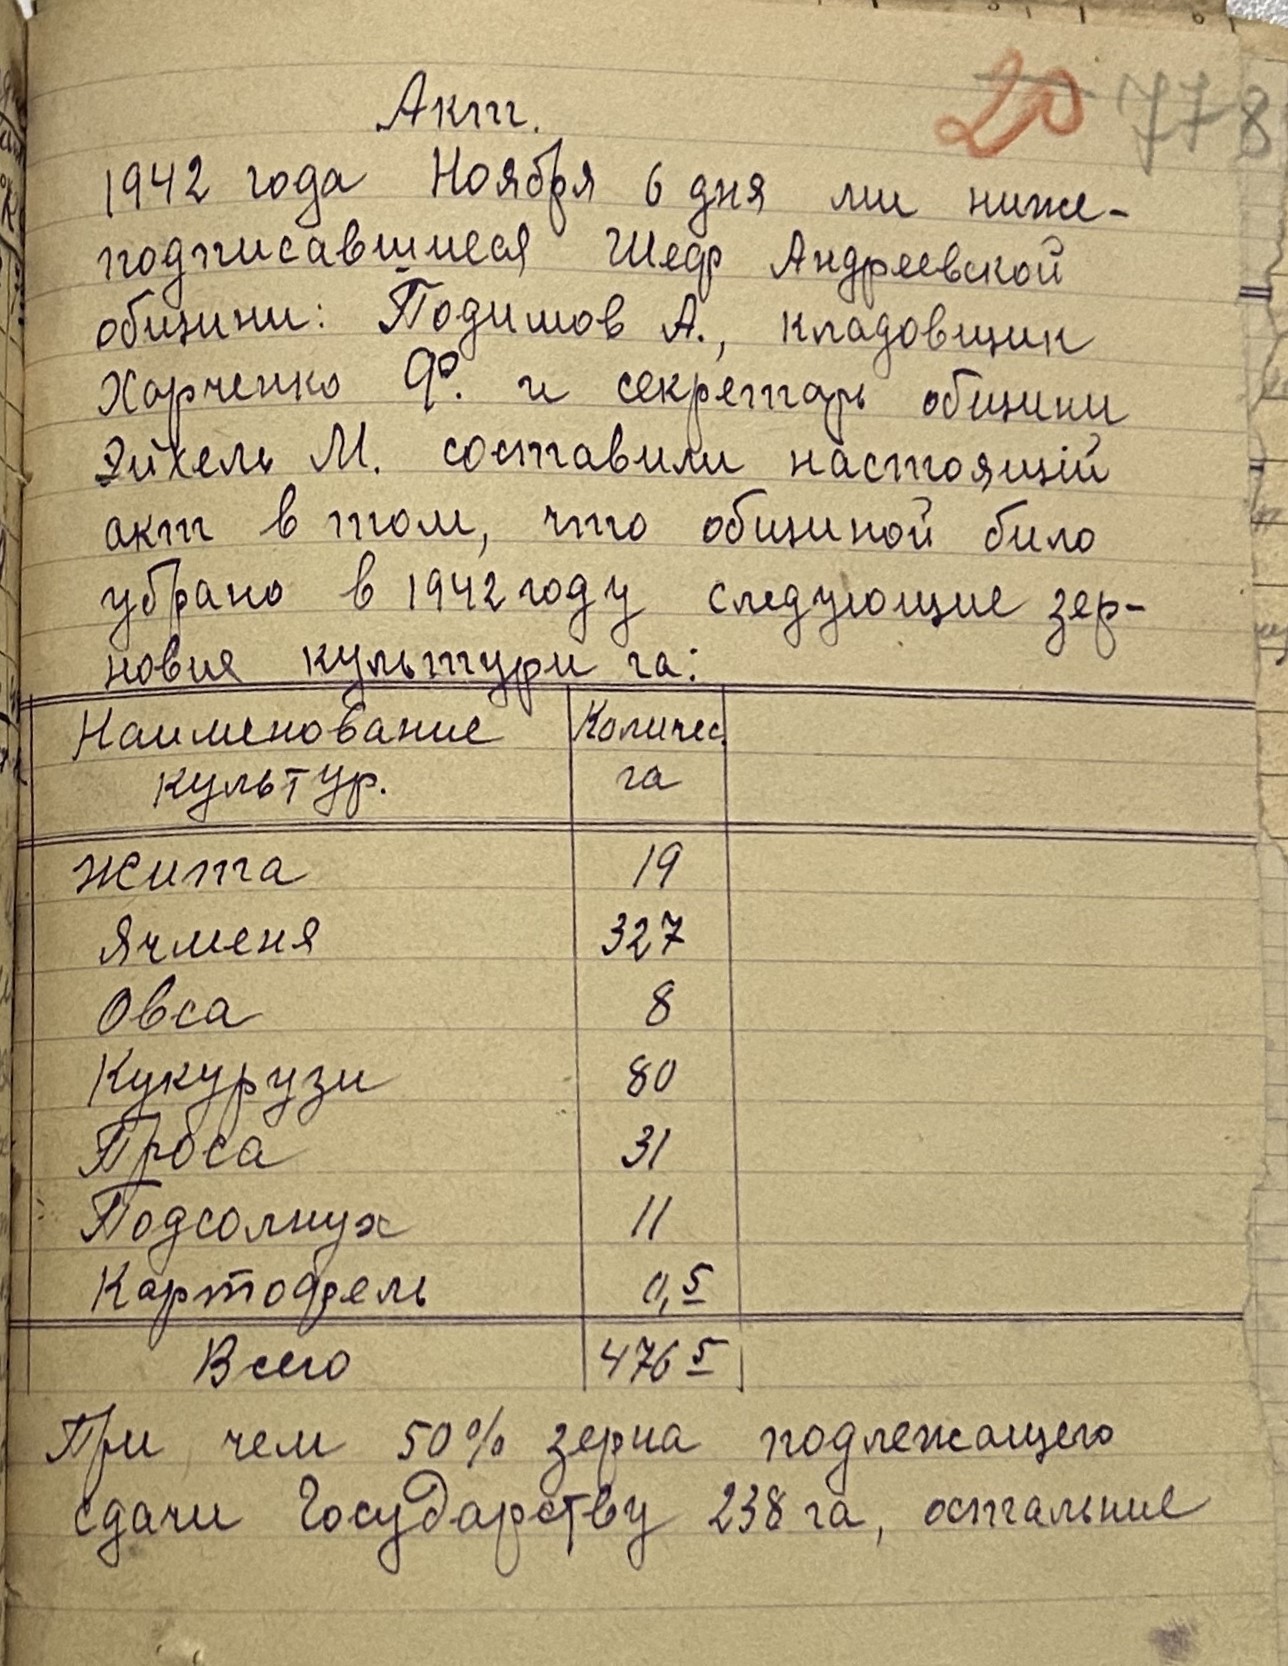 20 778
Акт.
1942 года Ноября 6 дня ми ниже-
подписавшиеся Шеф Андреевской
общини: Подимов А., кладовщик
Харченко Ф. и секретарь общини
Эйхель М. составили настоящій
акт в том, что общиной било
убрано в 1942 году следующие зер-
новие культури га:
Наименование Количес.
культур. га
Жита 19
Ячменя 327
Овса 8
Кукурузи 80
Проса 31
Подсолнух 11
Картофель 0,5
Всего 476 5
При чем 50% зерна подлежащего
сдачи Государству 238 га, остальние